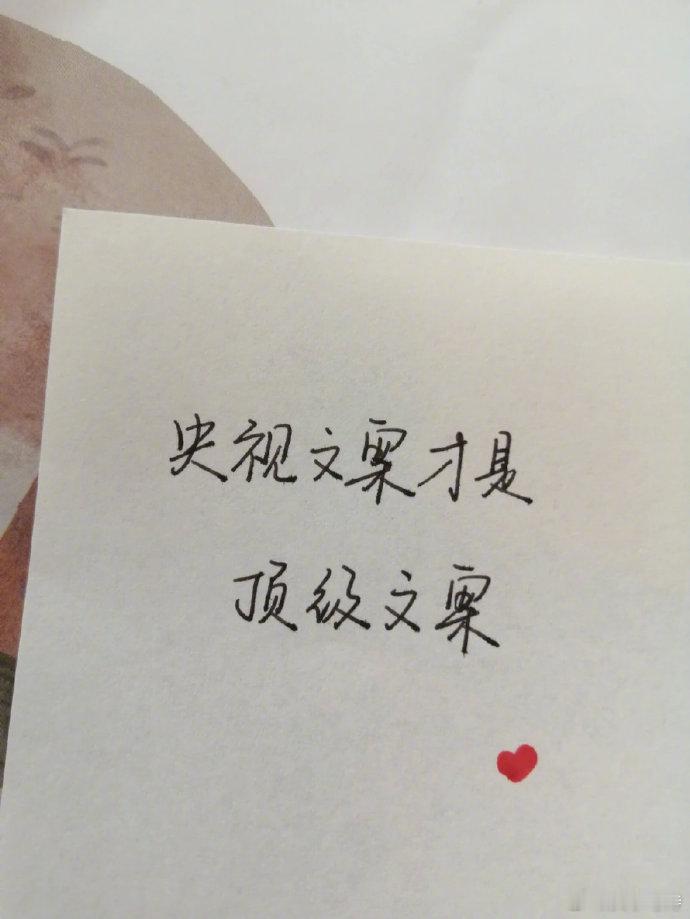 央视文案才是
顶级文案